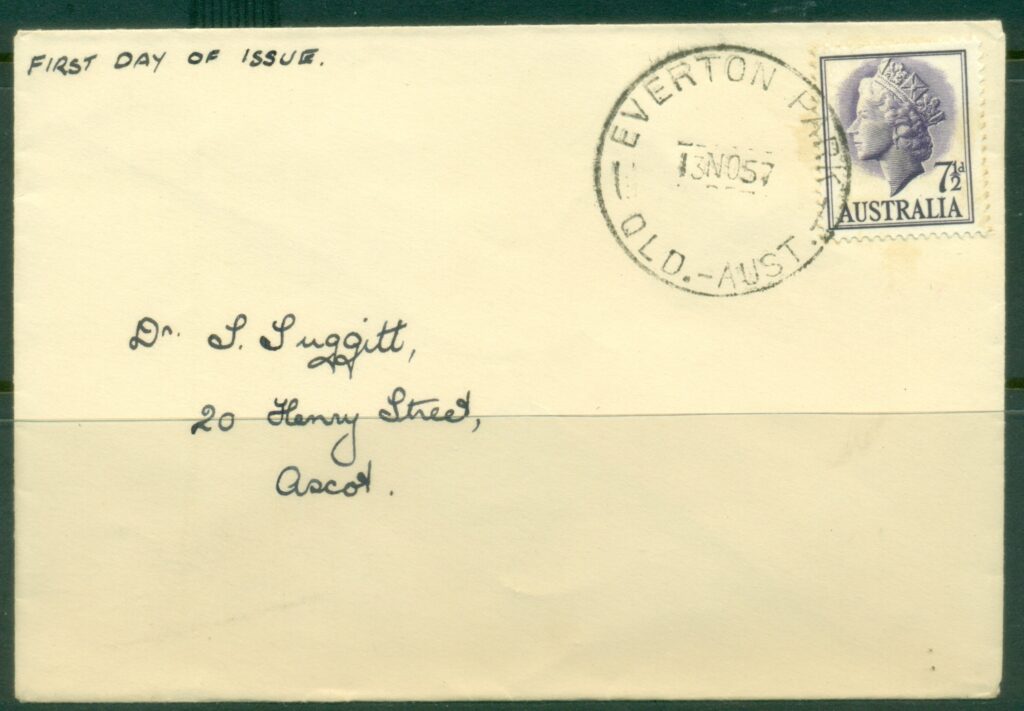 FIRST DAY OF ISSUE.
EVERTON PARK
13 NO 57
QLD.-AUST.
7½d
AUSTRALIA
Dr. S. Suggitt,
20 Henry Street,
Ascot.